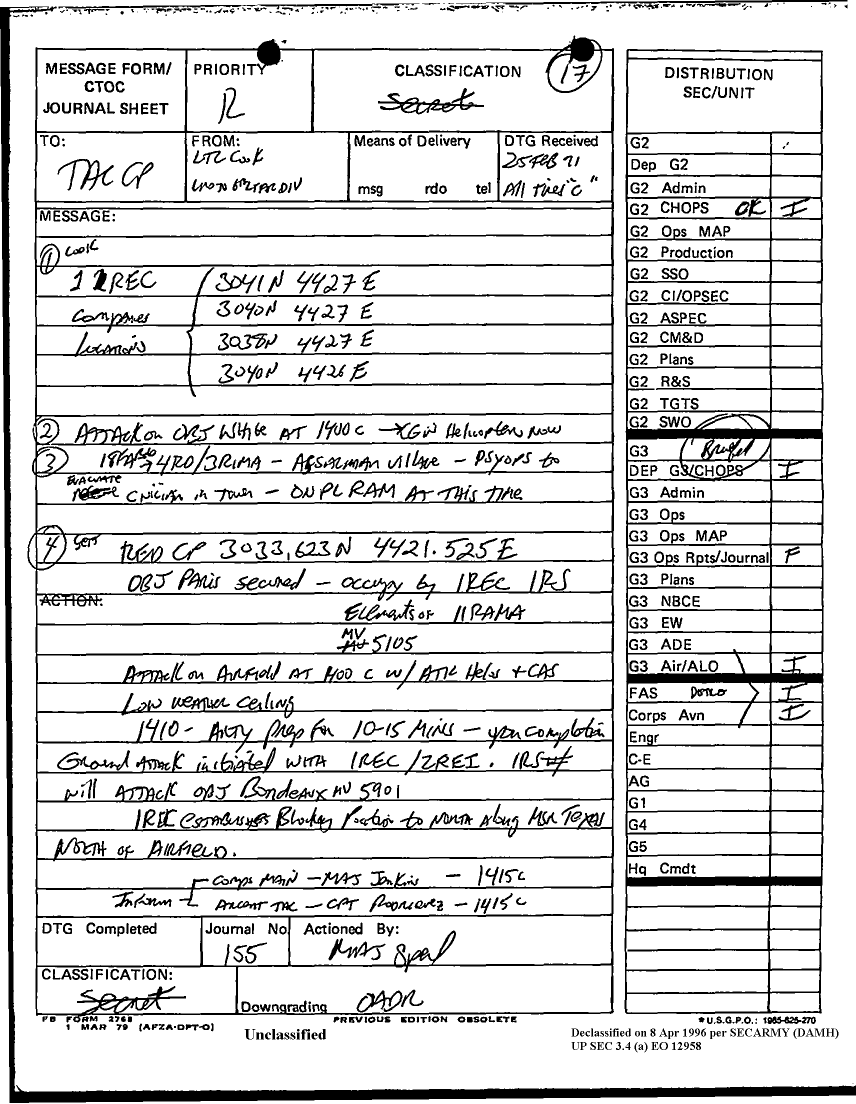 MESSAGE FORM/
CTOC
JOURNAL SHEET
PRIORITY
R
CLASSIFICATION
Secret
17
TO:
TAC CP
FROM:
LTC Cook
LNO TO 6FR LTARDIV
Means of Delivery
msg rdo tel
DTG Received
25 FEB 91
All times "C"
MESSAGE:
① Cook
1 REC
Companies
Locations
3041N 4427E
3040N 4427E
3038N 4427E
3040N 4426E
② ATTACK on OBJ White AT 1400c - Helicopters now
③ 4RD/3RIMA - ASSALMAN village - PSYOPS to
EVALUATE
civilian in Town - ON PL RAM AT THIS TIME
④
RED CP 3033,623N 4421.525E
OBJ PARIS secured - occupy by 1REC 1RS
ACTION:
Elements of 11RAMA
MV
5105
ATTACK on AIRFIELD AT 1400 C w/ ATK Helos + CAS
Low weather ceiling
1410 - ARTY prep for 10-15 Mins - upon completion
Ground ATTACK initiated WITH 1REC /2REI. 1RS
will ATTACK OBJ Bordeaux MV 5901
1REC ESTABLISHES Blocking Position to NORTH along MSR TEXAS
NORTH of AIRFIELD.
Inform
Corps MAIN - MAJ Jenkins - 1415c
Arcent TAC - CPT Rodriguez - 1415c
DTG Completed
Journal No
155
Actioned By:
MAJ
CLASSIFICATION:
Secret
Downgrading OADR
FB FORM 2768
1 MAR 79 (AFZA-DPT-O)
PREVIOUS EDITION OBSOLETE
Unclassified
DISTRIBUTION
SEC/UNIT
G2
Dep G2
G2 Admin
G2 CHOPS OK I
G2 Ops MAP
G2 Production
G2 SSO
G2 CI/OPSEC
G2 ASPEC
G2 CM&D
G2 Plans
G2 R&S
G2 TGTS
G2 SWO
G3 Briefed
DEP G3/CHOPS I
G3 Admin
G3 Ops
G3 Ops MAP
G3 Ops Rpts/Journal F
G3 Plans
G3 NBCE
G3 EW
G3 ADE
G3 Air/ALO I
FAS I
Corps Avn I
Engr
C-E
AG
G1
G4
G5
Hq Cmdt
*U.S.G.P.O.: 1985-625-270
Declassified on 8 Apr 1996 per SECARMY (DAMH)
UP SEC 3.4 (a) EO 12958